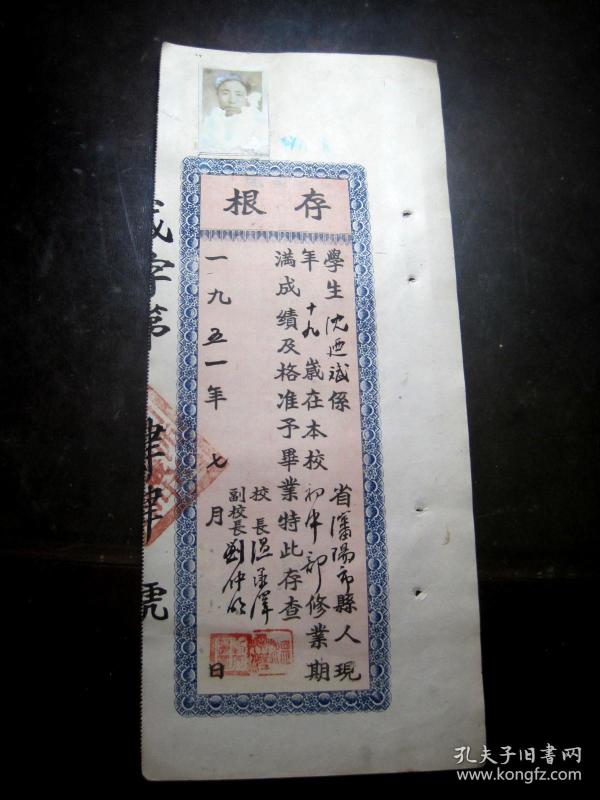 存根
學生沈迺斌係 省瀋陽市縣人現
年十九歲在本校初中部修業期
滿成績及格准予畢業特此存查
校長温承澤
副校長劉仲明
一九五一年七月 日
字第 號
孔夫子旧书网
www.kongfz.com